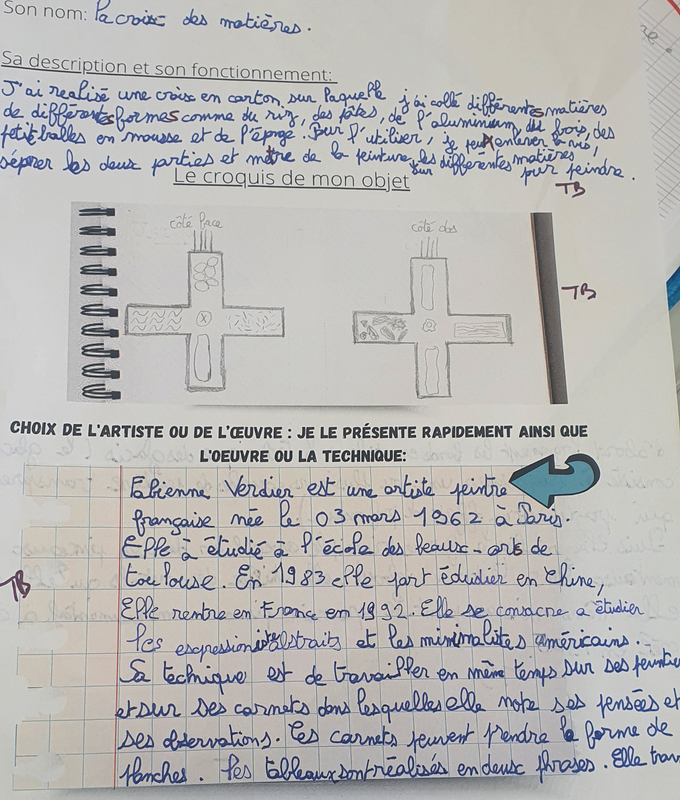 Son nom: La croix des matières.
Sa description et son fonctionnement:
J'ai réalisé une croix en carton sur laquelle j'ai collé différentes matières
de différentes formes comme du riz, des pâtes, de l'aluminium du bois, des
petites balles en mousse et de l'éponge. Pour l'utiliser, je peux enlever la vis,
séprer les deux parties et mettre de la peinture sur les différentes matières
pour peindre.
TB
Le croquis de mon objet
côté face
côté dos
TB
CHOIX DE L'ARTISTE OU DE L'ŒUVRE : JE LE PRÉSENTE RAPIDEMENT AINSI QUE
L'OEUVRE OU LA TECHNIQUE:
Fabienne Verdier est une artiste peintre
française née le 03 mars 1962 à Paris.
Elle à étudié à l'école des beaux-arts de
TB
toulouse. En 1983 elle part édudier en Chine,
Elle rentre en France en 1992. Elle se consacre a étudier
les expressionistes abstraits et les minimalites américains.
Sa technique est de travailler en même temps sur ses
et sur ses carnets dans lesquelles elle note ses pensées et
ses observations. Ces carnets peuvent prendre la forme de
planches. Les tableaux sont réalisés en deux phrases. Elle